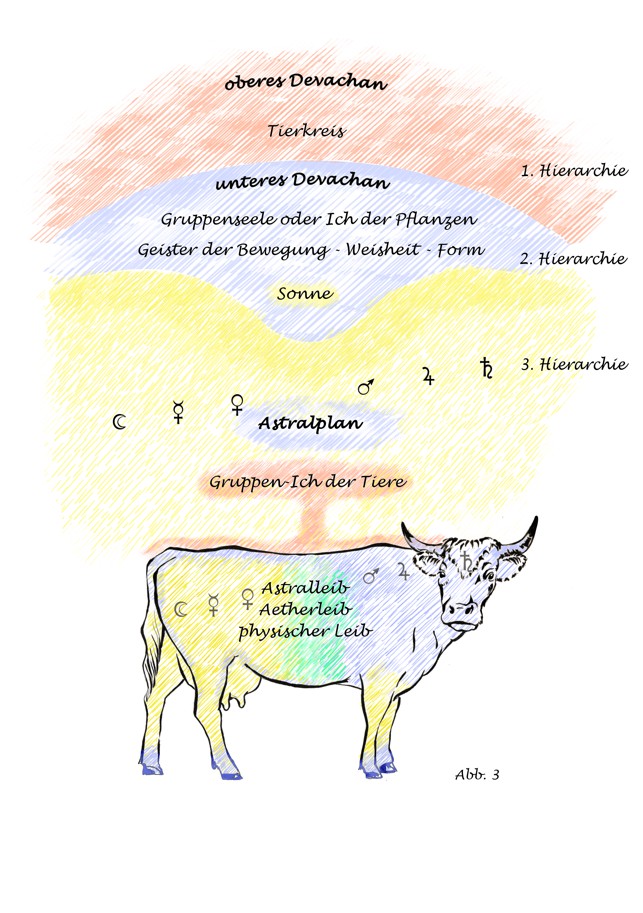 oberes Devachan
Tierkreis
1. Hierarchie
unteres Devachan
Gruppenseele oder Ich der Pflanzen
Geister der Bewegung - Weisheit - Form
2. Hierarchie
Sonne
3. Hierarchie
☾ ☿ ♀ ♂ ♃ ♄
Astralplan
Gruppen-Ich der Tiere
☾ ☿ ♀ ♂ ♃ ♄
Astralleib
Aetherleib
physischer Leib
Abb. 3